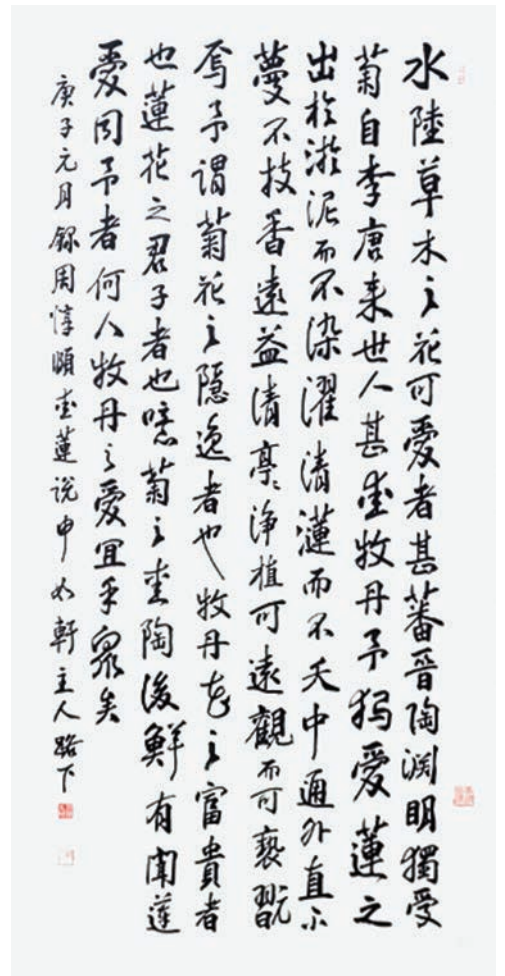 水陸草木之花可愛者甚蕃晉陶淵明獨愛
菊自李唐来世人甚愛牧丹予独愛蓮之
出於淤泥而不染濯清漣而不夭中通外直不
蔓不技香遠益清亭〻净植可遠觀而可褻翫
焉予謂菊花之隱逸者也牧丹花之富貴者
也蓮花之君子者也噫菊之愛陶後鮮有聞蓮
愛同予者何人牧丹之愛宜乎衆矣
庚子元月録周惇頤愛蓮说申如軒主人路下